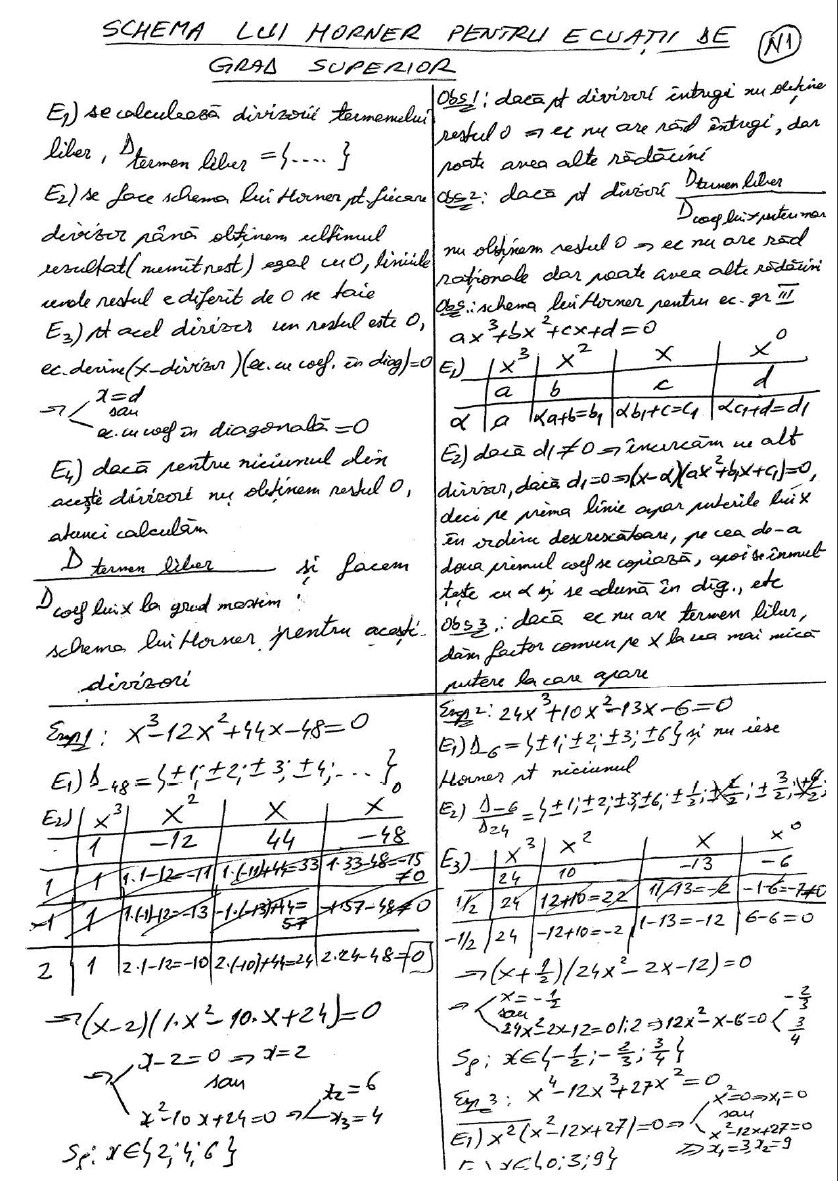 SCHEMA LUI HORNER PENTRU ECUAȚII DE
GRAD SUPERIOR
N1
E1) se calculează divizorii termenului
liber, D termen liber = {....}
E2) se face schema lui Horner pt. fiecare
divizor până obținem ultimul
rezultat (numit rest) egal cu 0, liniile
unde restul e diferit de 0 se taie
E3) pt acel divizor un restul este 0,
ec. devine (x-divizor)(ec. cu coef. în diag)=0
=> x=d
sau
ec. cu coef în diagonală =0
E4) dacă pentru niciunul din
acești divizori nu obținem restul 0,
atunci calculăm
D termen liber și facem
D coef lui x la grad maxim
schema lui Horner pentru acești
divizori
Obs1: dacă pt divizori întregi nu obține
restul 0 => ec nu are răd întregi, dar
poate avea alte rădăcini
Obs2: dacă pt divizori D termen liber
D coef lui x puter max
nu obținem restul 0 => ec nu are răd
raționale dar poate avea alte rădăcini
Obs.: schema lui Horner pentru ec. gr III
ax³+bx²+cx+d=0
E1) x³ x² x x⁰
a b c d
α a αa+b=b1 αb1+c=c1 αc1+d=d1
E2) dacă d1≠0 => încercăm cu alt
divizor, dacă d1=0 => (x-α)(ax²+b1x+c1)=0,
deci pe prima linie apar puterile lui x
în ordine descrescătoare, pe cea de-a
doua primul coef se copiază, apoi se înmul
țește cu α și se adună în diag., etc
Obs3.: dacă ec nu are termen liber,
dăm factor comun pe x la cea mai mică
putere la care apare
Exp1: x³-12x²+44x-48=0
E1) D-48={±1;±2;±3;±4;...}
E2) x³ x² x x⁰
1 -12 44 -48
1 1 1·1-12=-11 1·(-11)+44=33 1·33-48=-15≠0
-1 1 1·(-1)-12=-13 -1·(-13)+44=57 -1·57-48≠0
2 1 2·1-12=-10 2·(-10)+44=24 2·24-48=0
=> (x-2)(1·x²-10·x+24)=0
=> x-2=0 => x=2
sau
x²-10x+24=0 => x2=6
x3=4
Sf: x∈{2;4;6}
Exp2: 24x³+10x²-13x-6=0
E1) D-6={±1;±2;±3;±6} și nu iese
Horner pt niciunul
E2) D-6/D24={±1;±2;±3;±6;±1/2;±2/2;±3/2;±6/2;
E3) x³ x² x x⁰
24 10 -13 -6
1/2 24 12+10=22 11-13=-2 -1-6=-7≠0
-1/2 24 -12+10=-2 1-13=-12 6-6=0
=> (x+1/2)(24x²-2x-12)=0
=> x=-1/2
sau
24x²-2x-12=0 |:2 => 12x²-x-6=0 < -2/3
3/4
Sf: x∈{-1/2;-2/3;3/4}
Exp3: x⁴-12x³+27x²=0
E1) x²(x²-12x+27)=0 => x²=0 => x1=0
sau
x²-12x+27=0
=> x1=3, x2=9
x∈{0;3;9}